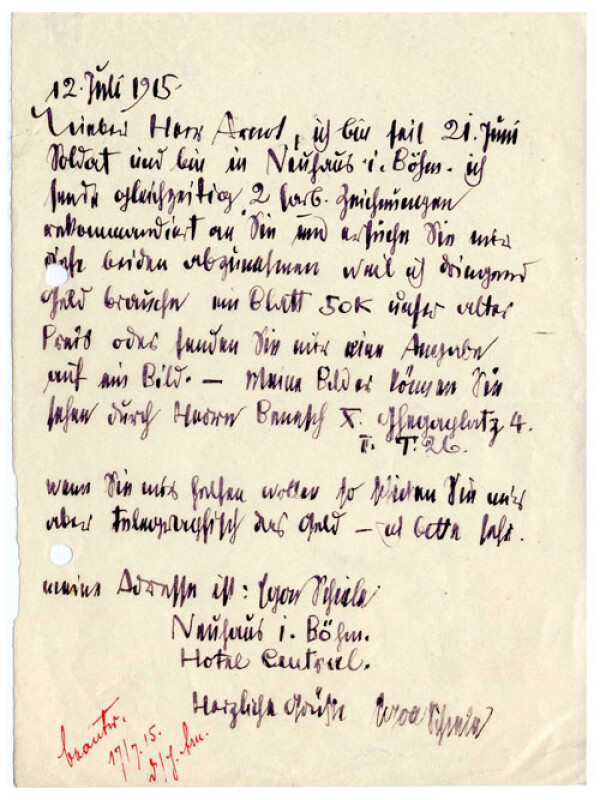 12. Juli 1915.
Lieber Herr Arnot, ich bin seit 21. Juni
Soldat und bin in Neuhaus i. Böhm. ich
sende gleichzeitig 2 farb. Zeichnungen
rekommandiert an Sie und ersuche Sie mir
diese beiden abzunehmen weil ich dringend
Geld brauche ein Blatt 50K unser alter
Preis oder senden Sie mir eine Angabe
auf ein Bild. — Meine Bilder können Sie
sehen durch Herrn Benesch X. Ghegaplatz 4.
II. T. 26.
wenn Sie mir helfen wollen so schicken Sie mir
aber telegraphisch das Geld — ich bitte sehr.
meine Adresse ist: Egon Schiele
Neuhaus i. Böhm.
Hotel Central.
Herzliche Grüße Egon Schiele
beantw.
17/7. 15.